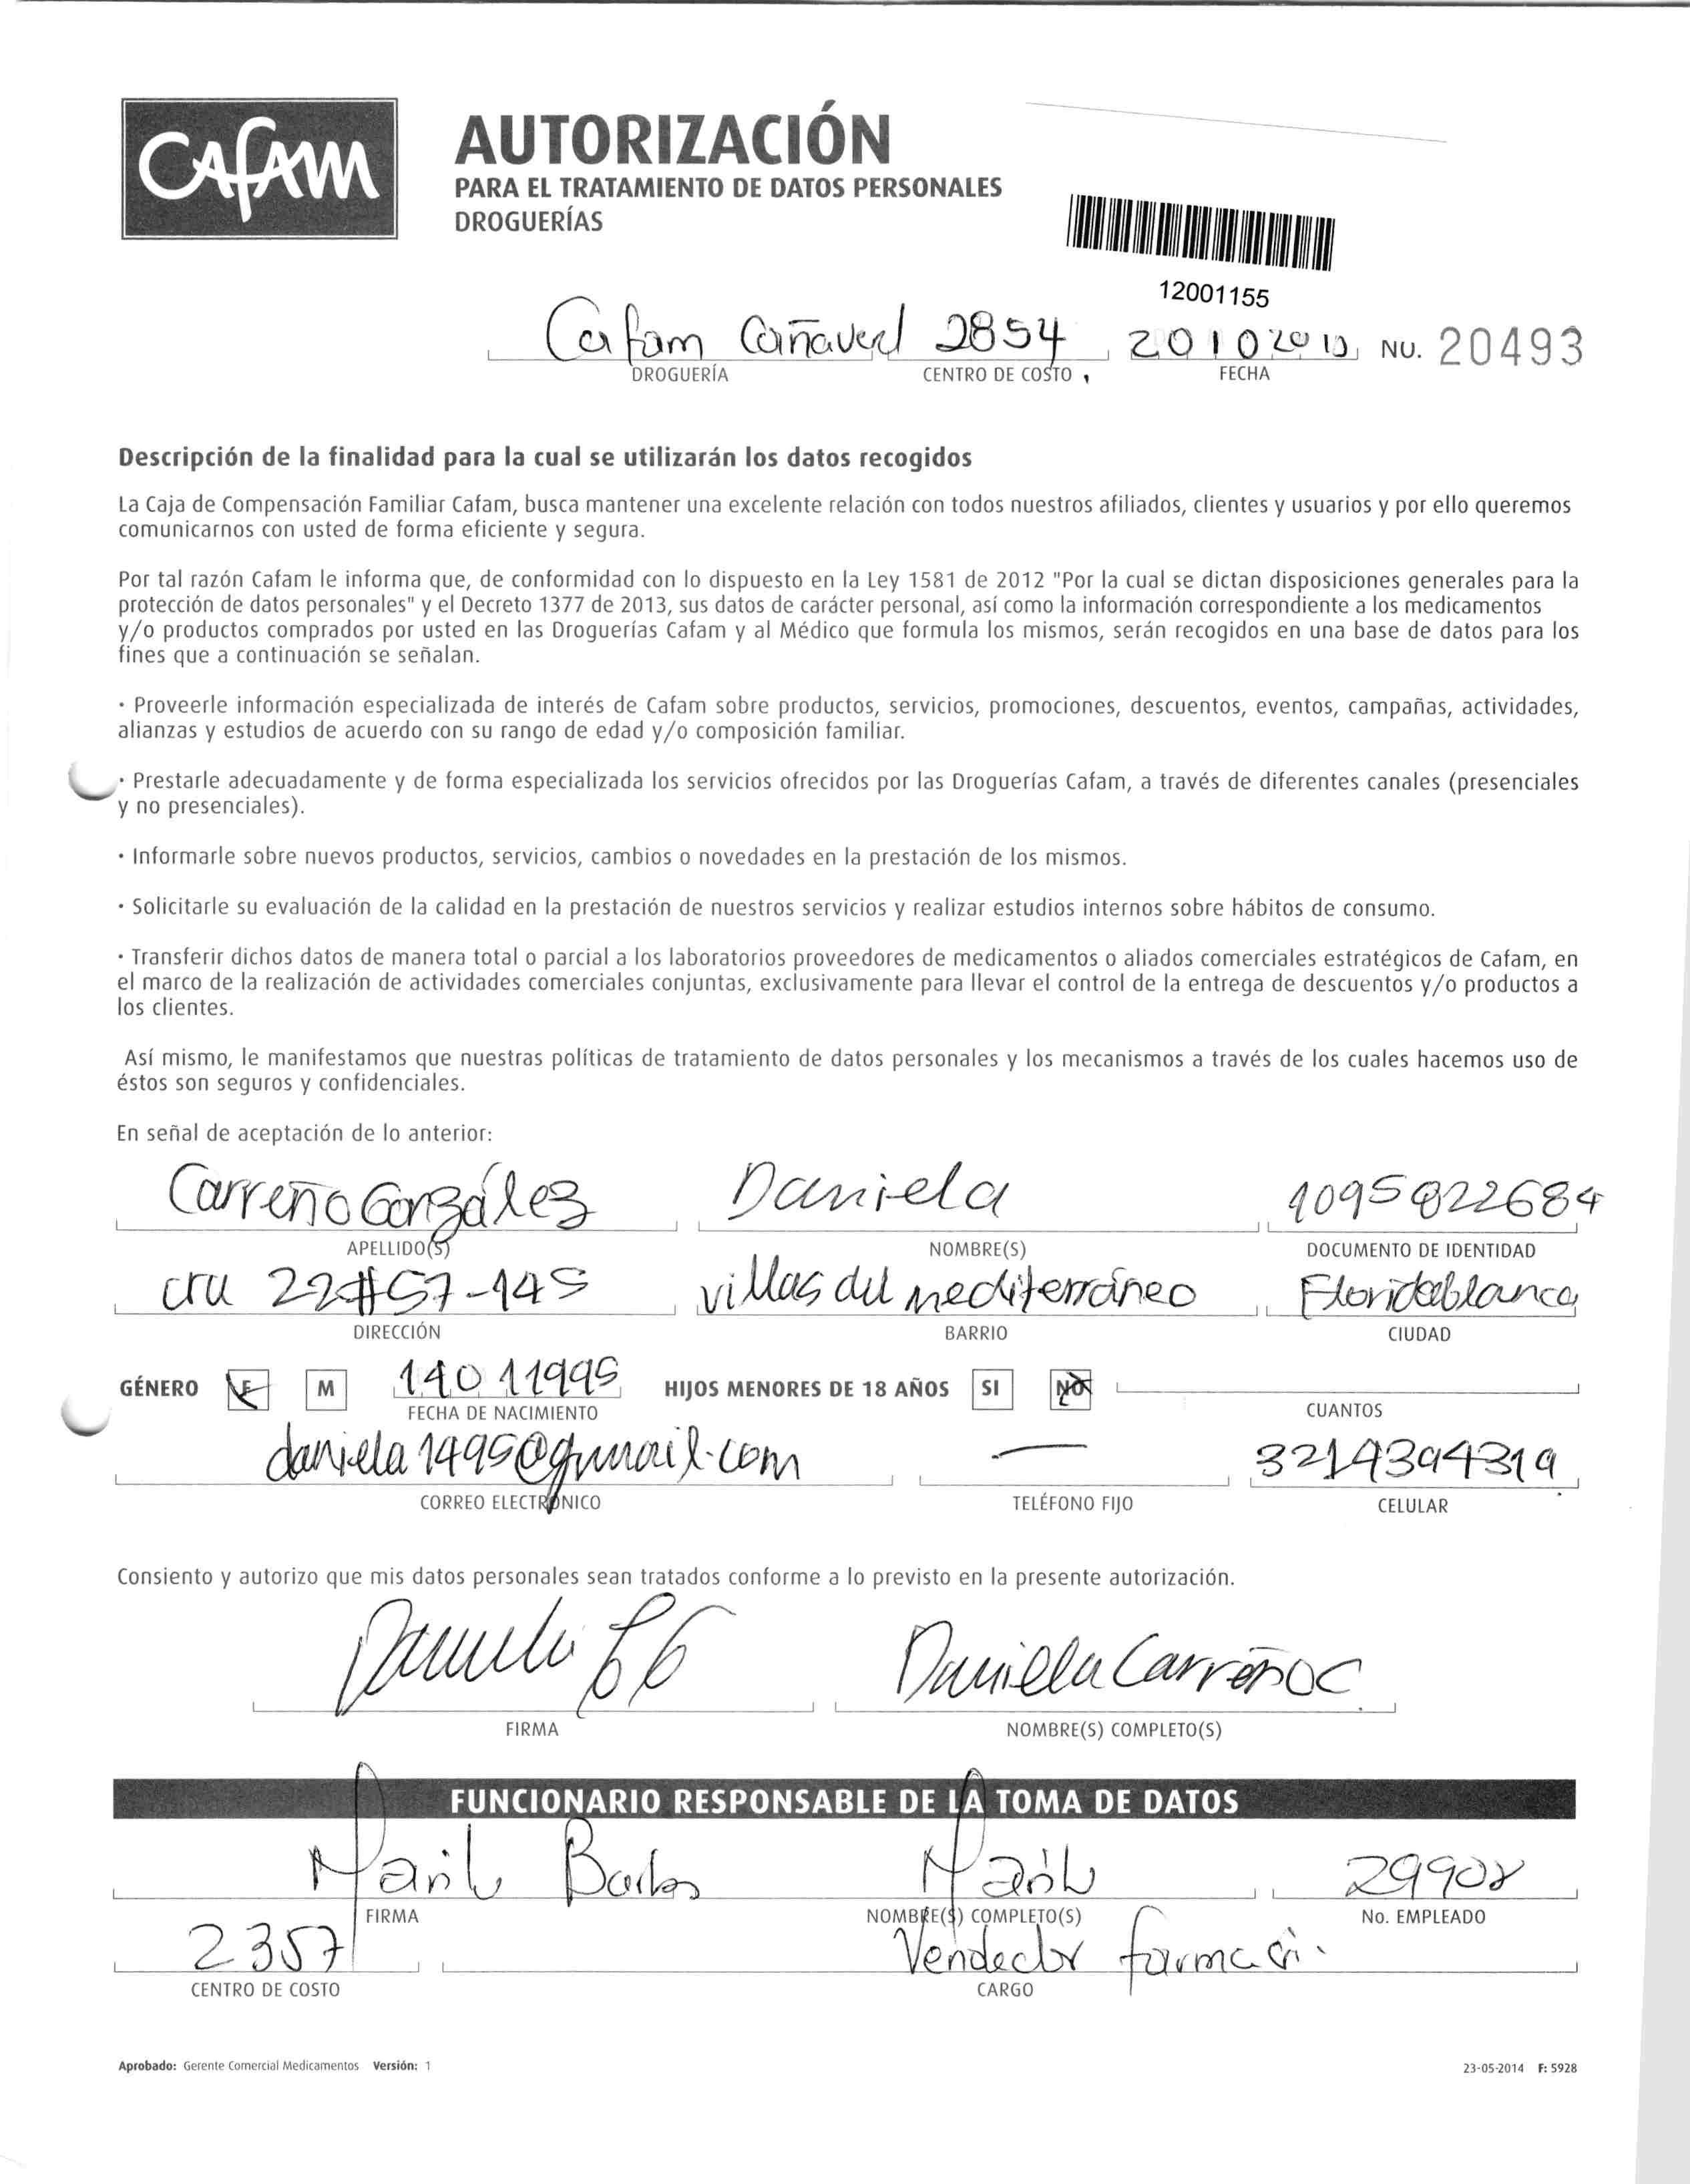 CAFAM
AUTORIZACIÓN
PARA EL TRATAMIENTO DE DATOS PERSONALES
DROGUERÍAS
12001155
Cafam Cañaveral 2854 NU. 20493
DROGUERÍA CENTRO DE COSTO FECHA
Descripción de la finalidad para la cual se utilizarán los datos recogidos
La Caja de Compensación Familiar Cafam, busca mantener una excelente relación con todos nuestros afiliados, clientes y usuarios y por ello queremos
comunicarnos con usted de forma eficiente y segura.
Por tal razón Cafam le informa que, de conformidad con lo dispuesto en la Ley 1581 de 2012 "Por la cual se dictan disposiciones generales para la
protección de datos personales" y el Decreto 1377 de 2013, sus datos de carácter personal, así como la información correspondiente a los medicamentos
y/o productos comprados por usted en las Droguerías Cafam y al Médico que formula los mismos, serán recogidos en una base de datos para los
fines que a continuación se señalan.
· Proveerle información especializada de interés de Cafam sobre productos, servicios, promociones, descuentos, eventos, campañas, actividades,
alianzas y estudios de acuerdo con su rango de edad y/o composición familiar.
· Prestarle adecuadamente y de forma especializada los servicios ofrecidos por las Droguerías Cafam, a través de diferentes canales (presenciales
y no presenciales).
· Informarle sobre nuevos productos, servicios, cambios o novedades en la prestación de los mismos.
· Solicitarle su evaluación de la calidad en la prestación de nuestros servicios y realizar estudios internos sobre hábitos de consumo.
· Transferir dichos datos de manera total o parcial a los laboratorios proveedores de medicamentos o aliados comerciales estratégicos de Cafam, en
el marco de la realización de actividades comerciales conjuntas, exclusivamente para llevar el control de la entrega de descuentos y/o productos a
los clientes.
Así mismo, le manifestamos que nuestras políticas de tratamiento de datos personales y los mecanismos a través de los cuales hacemos uso de
éstos son seguros y confidenciales.
En señal de aceptación de lo anterior:
Carreño González Daniela 1095822684
APELLIDO(S) NOMBRE(S) DOCUMENTO DE IDENTIDAD
cra 22#57-145 villas del mediterráneo Floridablanca
DIRECCIÓN BARRIO CIUDAD
GÉNERO F M 14011995 HIJOS MENORES DE 18 AÑOS SI NO
FECHA DE NACIMIENTO CUANTOS
daniela1495@gmail.com — 3214394319
CORREO ELECTRÓNICO TELÉFONO FIJO CELULAR
Consiento y autorizo que mis datos personales sean tratados conforme a lo previsto en la presente autorización.
Daniela Carreño G
FIRMA NOMBRE(S) COMPLETO(S)
FUNCIONARIO RESPONSABLE DE LA TOMA DE DATOS
29902
FIRMA NOMBRE(S) COMPLETO(S) No. EMPLEADO
2357 Vendedor
CENTRO DE COSTO CARGO
Aprobado: Gerente Comercial Medicamentos Versión: 1 23-05-2014 F: 5928